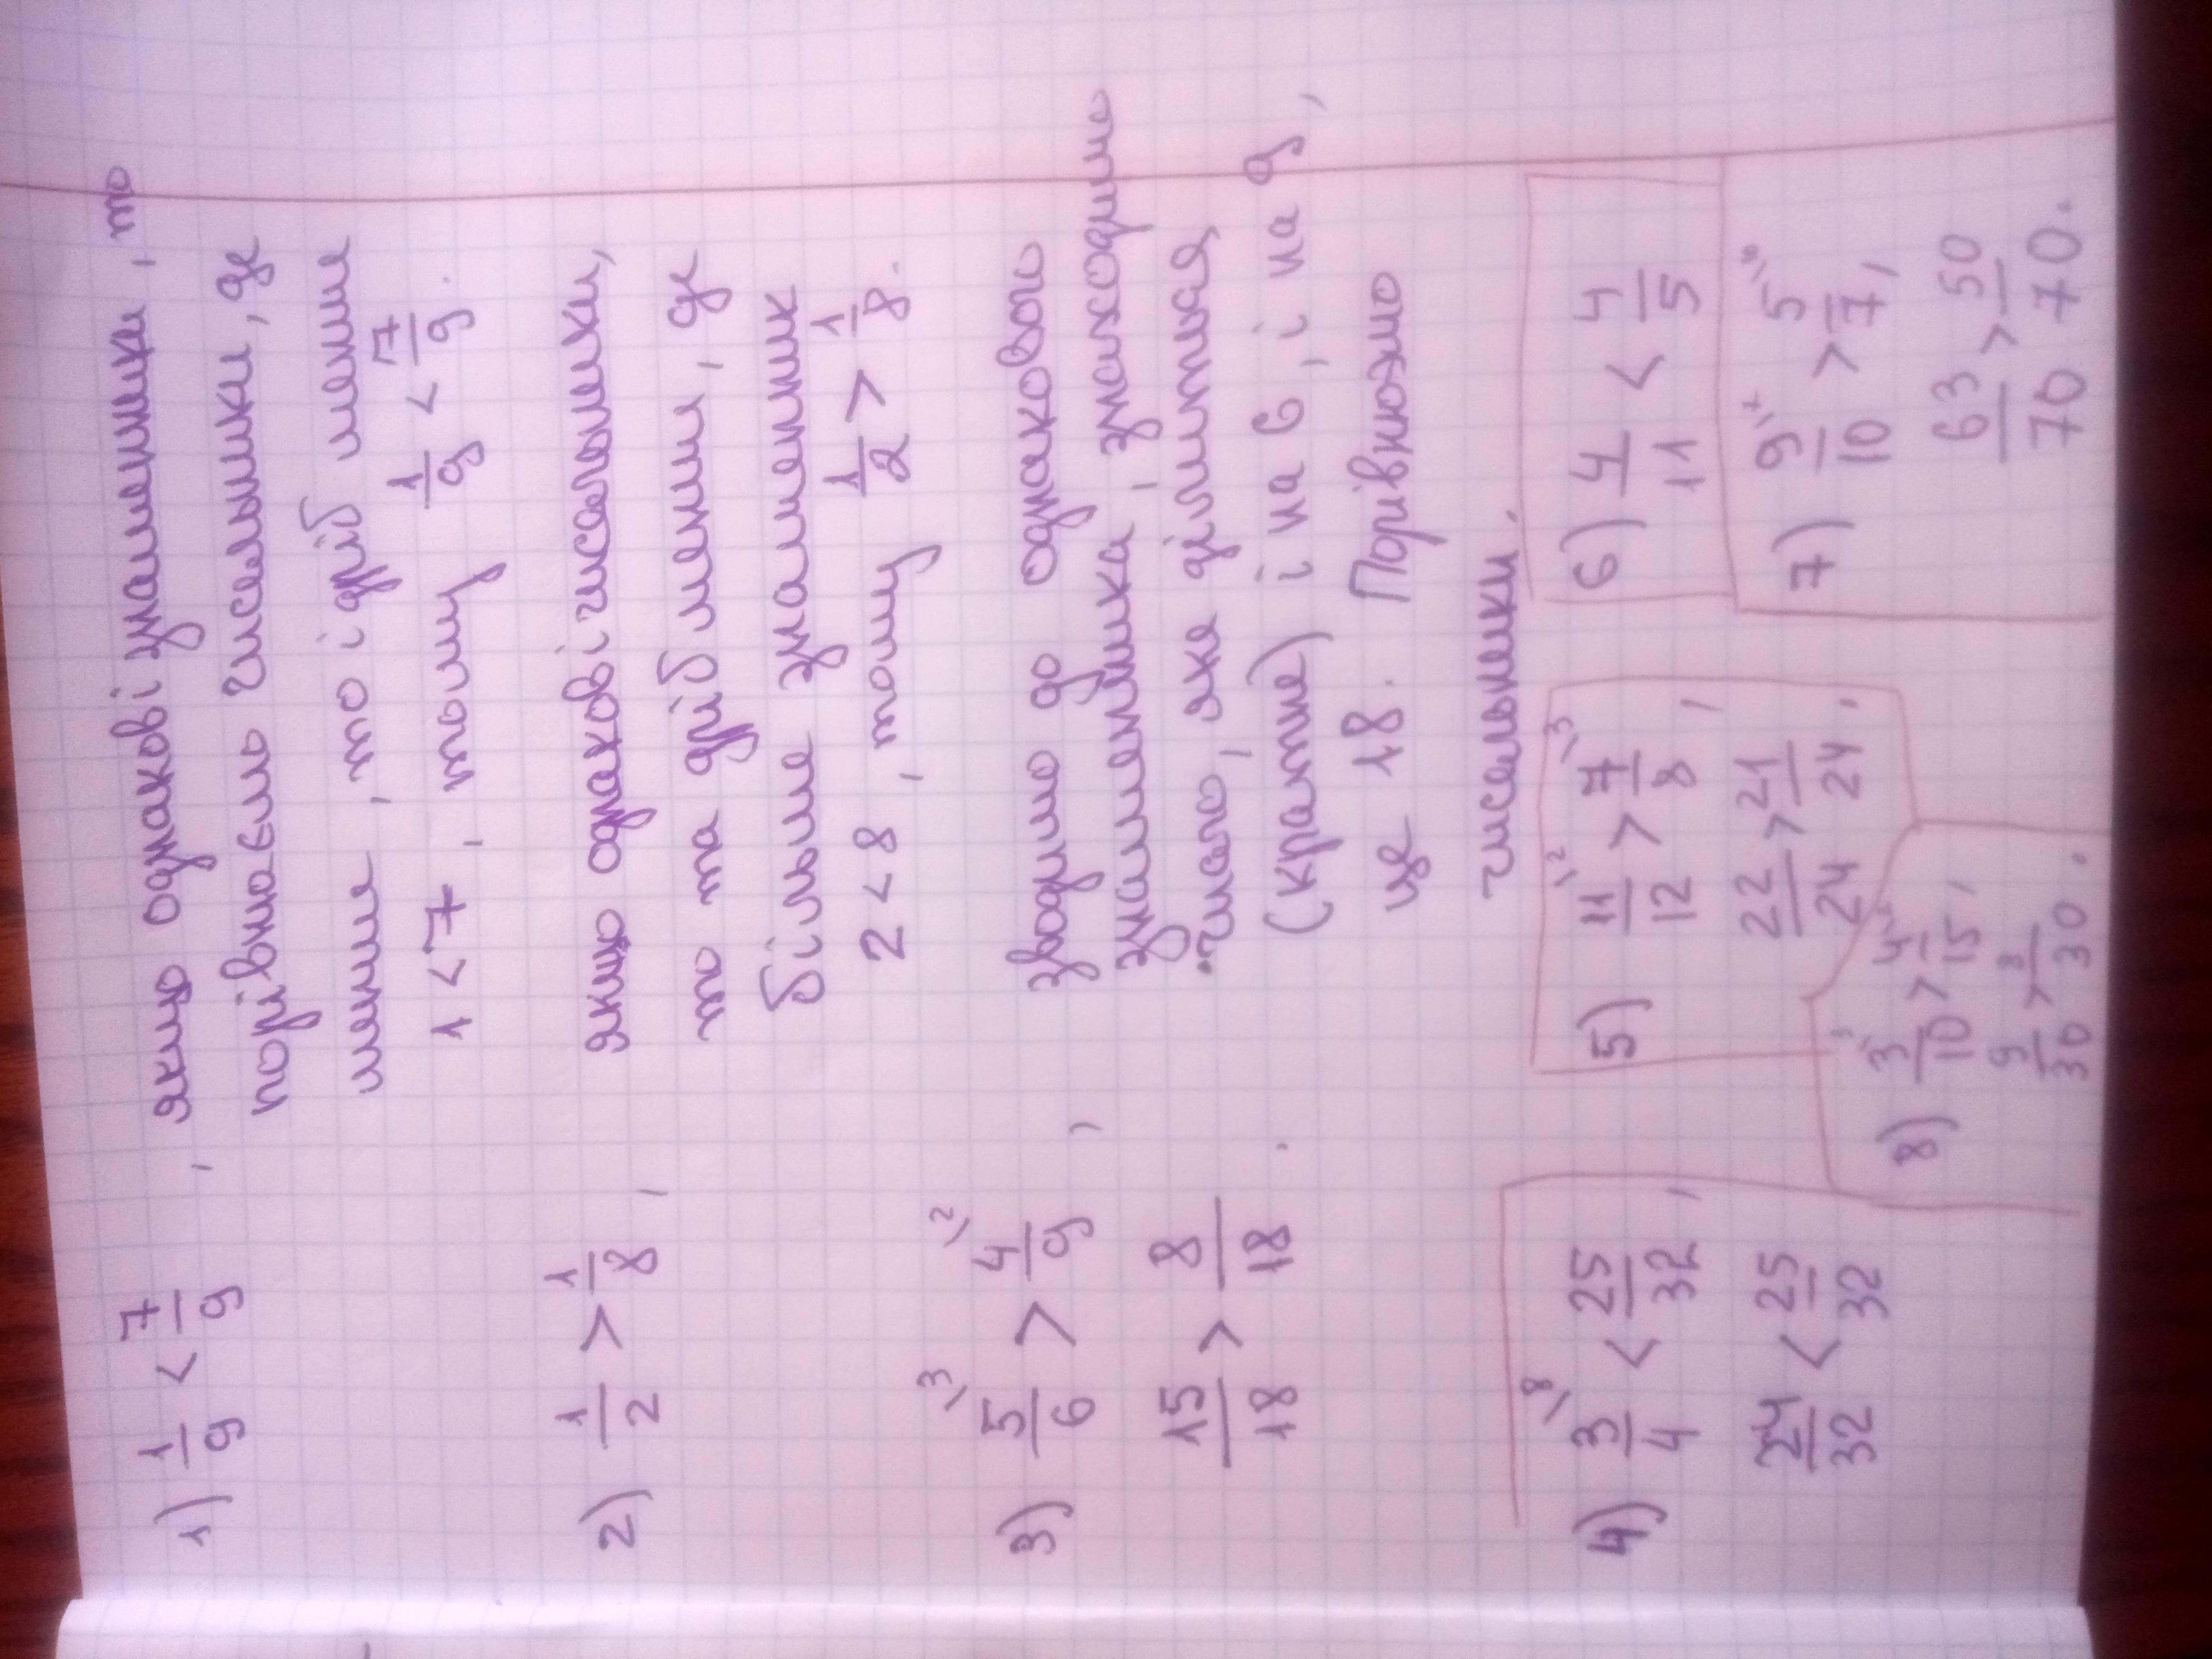 1) 1/9 < 7/9 , якщо однакові знаменники, то
порівнюємо чисельники, де
менше, то і дріб менше
1 < 7, тому 1/9 < 7/9.
2) 1/2 > 1/8, якщо однакові чисельники,
то та дріб менши, де
більше знаменник
2 < 8, тому 1/2 > 1/8.
3) 5\3/6 > 4\2/9 , зводимо до однакового
знаменника, знаходимо
число, яке ділиться
15/18 > 8/18. (кратне) і на 6, і на 9,
це 18. Порівнюємо
чисельники.
4) 3\8/4 < 25/32,
24/32 < 25/32
5) 11\2/12 > 7\3/8,
22/24 > 21/24.
6) 4/11 < 4/5
7) 9\7/10 > 5\10/7,
63/70 > 50/70.
8) 3\3/10 > 4\2/15,
9/30 > 8/30.